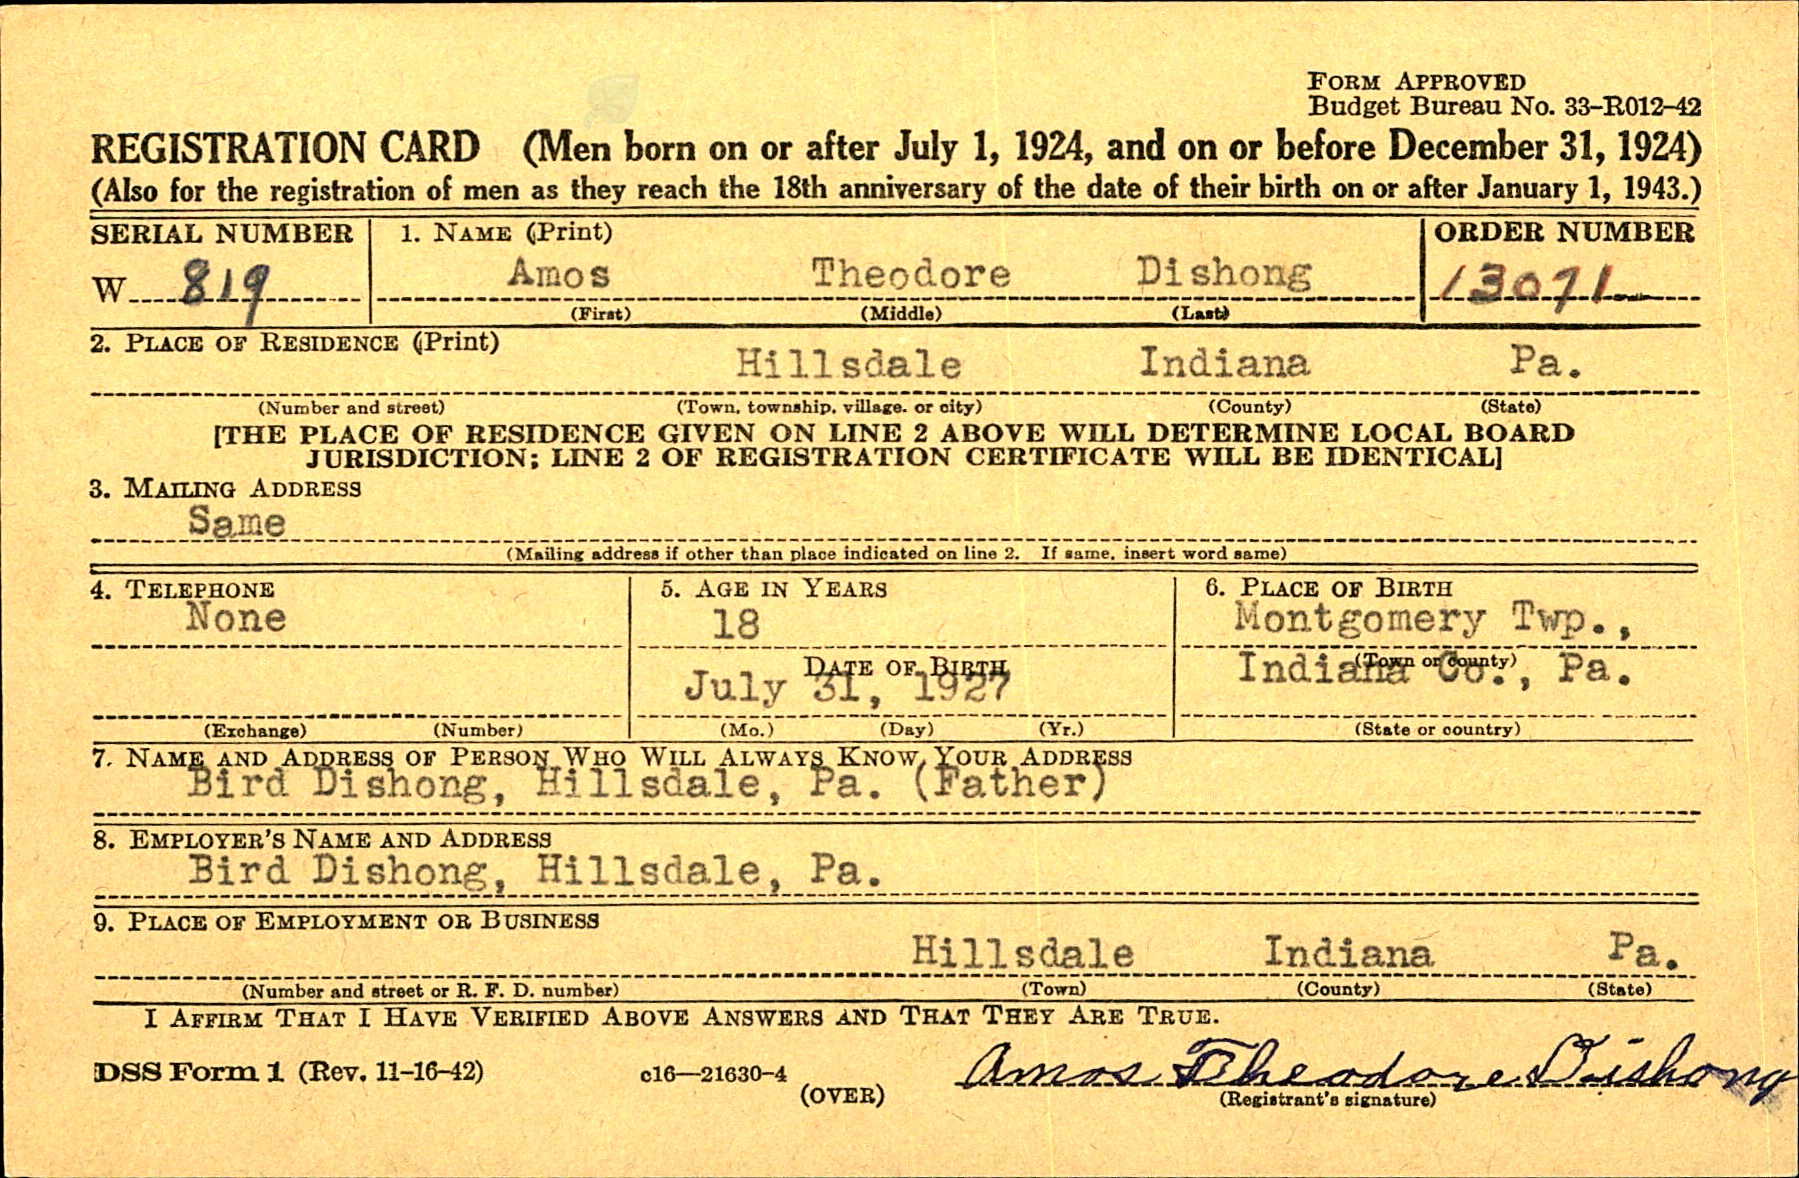 FORM APPROVED
Budget Bureau No. 33–R012–42
REGISTRATION CARD (Men born on or after July 1, 1924, and on or before December 31, 1924)
(Also for the registration of men as they reach the 18th anniversary of the date of their birth on or after January 1, 1943.)
SERIAL NUMBER 1. NAME (Print) ORDER NUMBER
W 819 Amos Theodore Dishong 13071
(First) (Middle) (Last)
2. PLACE OF RESIDENCE (Print)
Hillsdale Indiana Pa.
(Number and street) (Town, township, village, or city) (County) (State)
[THE PLACE OF RESIDENCE GIVEN ON LINE 2 ABOVE WILL DETERMINE LOCAL BOARD
JURISDICTION; LINE 2 OF REGISTRATION CERTIFICATE WILL BE IDENTICAL]
3. MAILING ADDRESS
Same
(Mailing address if other than place indicated on line 2. If same, insert word same)
4. TELEPHONE 5. AGE IN YEARS 6. PLACE OF BIRTH
None 18 Montgomery Twp.,
DATE OF BIRTH (Town or county)
July 31, 1927 Indiana Co., Pa.
(Exchange) (Number) (Mo.) (Day) (Yr.) (State or country)
7. NAME AND ADDRESS OF PERSON WHO WILL ALWAYS KNOW YOUR ADDRESS
Bird Dishong, Hillsdale, Pa. (Father)
8. EMPLOYER'S NAME AND ADDRESS
Bird Dishong, Hillsdale, Pa.
9. PLACE OF EMPLOYMENT OR BUSINESS
Hillsdale Indiana Pa.
(Number and street or R. F. D. number) (Town) (County) (State)
I AFFIRM THAT I HAVE VERIFIED ABOVE ANSWERS AND THAT THEY ARE TRUE.
DSS Form 1 (Rev. 11–16–42) c16—21630–4 Amos Theodore Dishong
(OVER) (Registrant's signature)